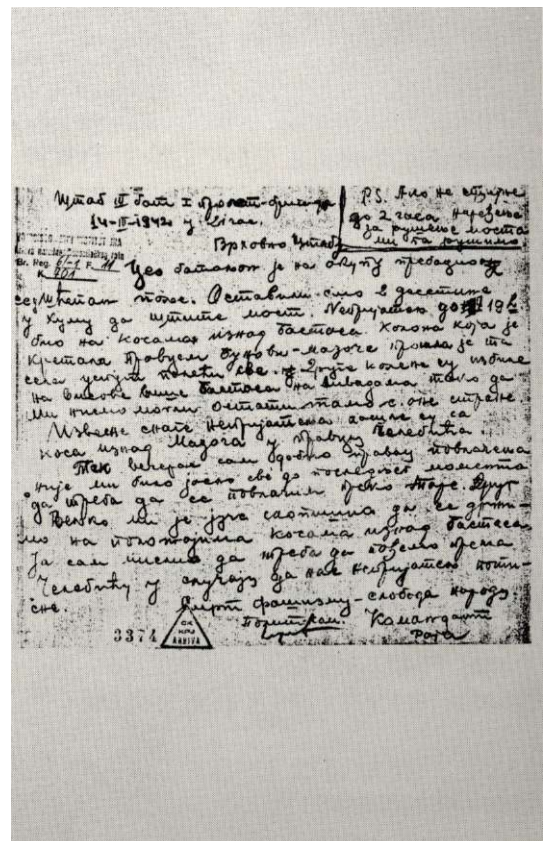 Штаб III бат I пролет-бригаде
14-II-1942 у
Врховном Штабу
P.S. Ако не стигне
до 2 часа наређење
за рушење моста
ми га рушимо
Цео батаљон је на окупу пребацио
се Оставили смо 2 десетине
у Хуму да штите мост. Непријатељ до 19 h
био на косама изнад Бастаса. Колона која је
кретала правцем Вукови-Маоче прошла је та
села Друге колоне су избиле
на висове више Бастаса на ливадама тако да
ми нисмо могли остати тамо с оне стране.
Извесне снаге непријатеља су са
коса изнад у правцу Челебића.
Тек вечерас сам добио правац повлачења
није ми било јасно све до последњег момента
да треба да се повлачим преко Таре. Друг
Вељко ми је јуче саопштио да се држи-
мо на положајима косама изнад Бастаса
Ја сам мислио да треба да идемо према
Челебићу у случају да нас непријатељ поти-
сне.
Смрт фашизму-слобода народу.
Полит. ком. Командант
3374
CK
KPJ
ARHIVA